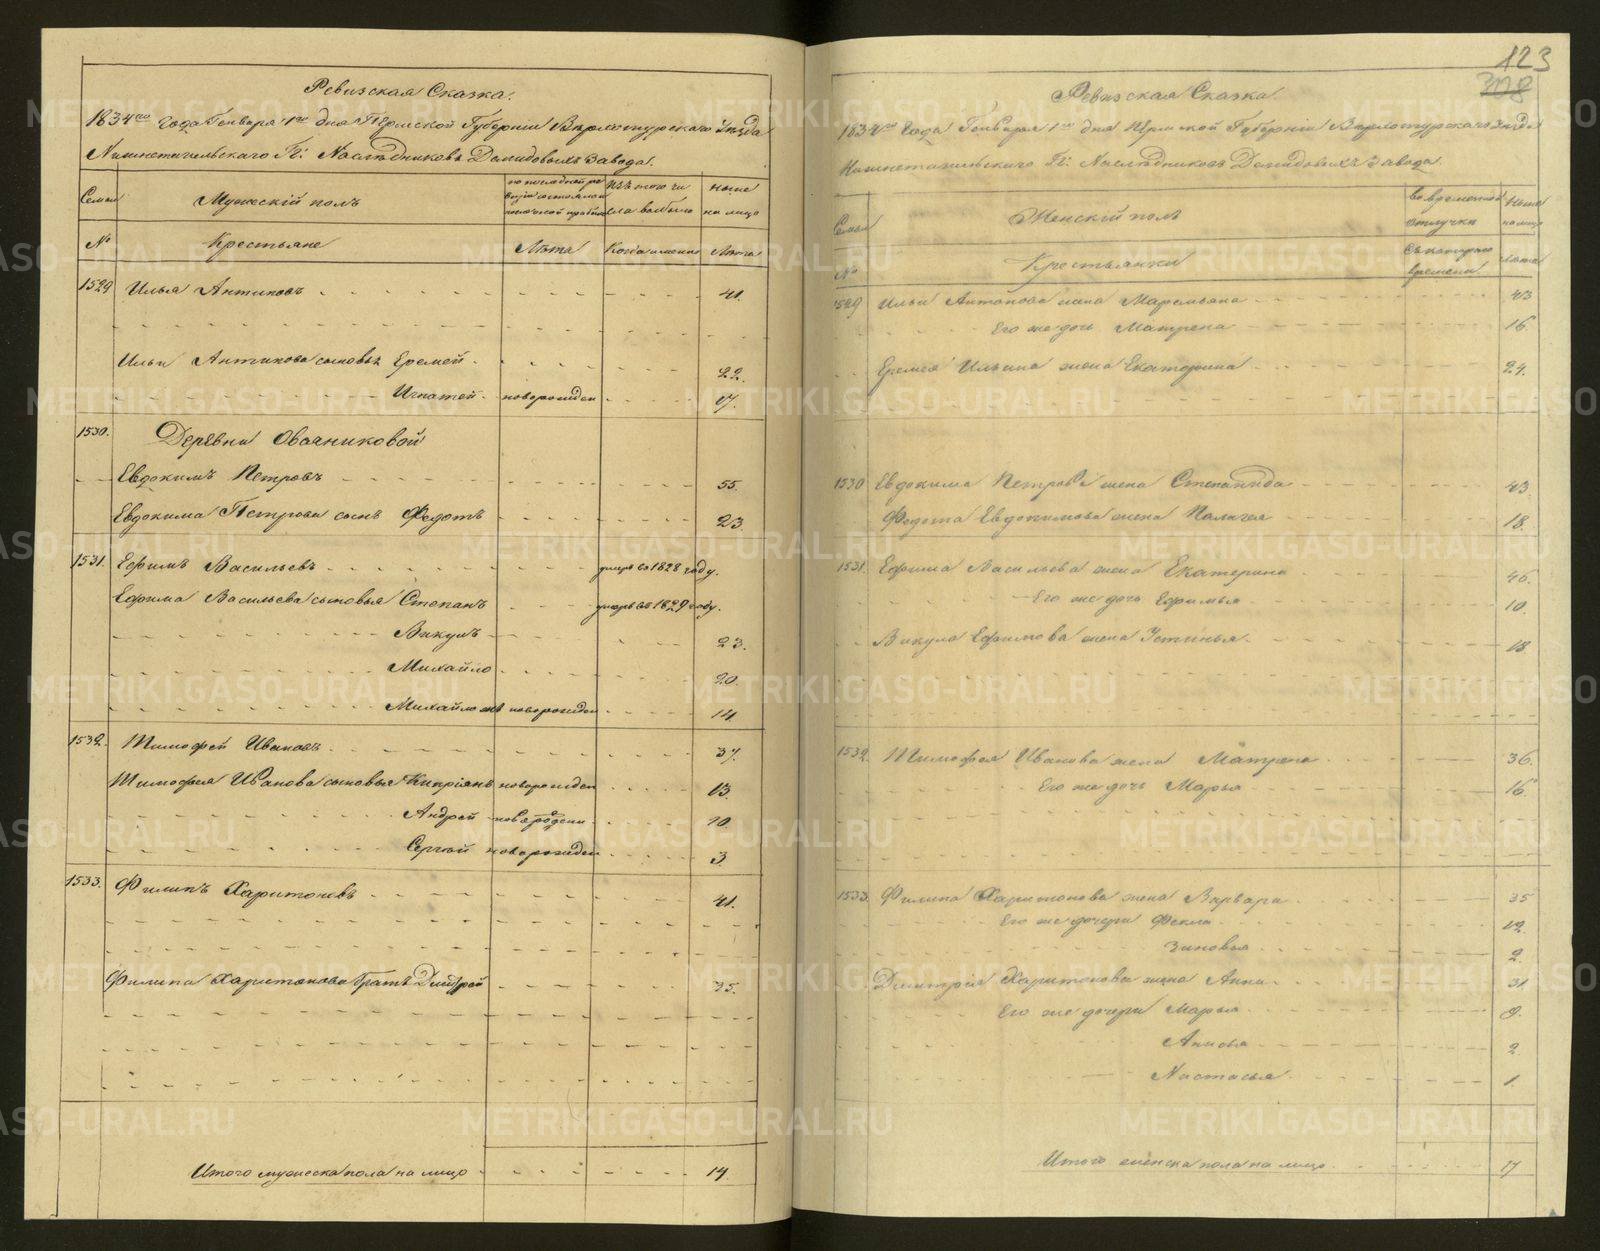 Ревизская Сказка.
1834го года Генваря 1го дня Пермской Губерніи Верхотурскаго Уѣзда
Нижнетагильскаго Гг: Наслѣдниковъ Демидовыхъ Завода.
Семьи
Мужескій полъ
по последней ре
визіи состояло и
Изъ того чи
сла выбыло
Ныне
на лицо
№
Крестьяне
Лѣта
Когда именно
Лѣта
1529 Илья Антиповъ 41.
Ильи Антипова сыновья Еремей 22.
Игнатей новорожден 17.
1530. Деревни Овчинниковой
Евдокимъ Петровъ 55.
Евдокима Петрова сынъ Федотъ 23
1531. Ефимъ Васильевъ умеръ въ 1828 году.
Ефима Васильева сыновья Степанъ умеръ въ 1829 году.
Викулъ 23.
Михайло 20.
Михайло же новорожден 14
1532. Тимофей Ивановъ 37.
Тимофея Иванова сыновья Кипріянъ новорожден 13
Андрей новорожден 10
Сергѣй новорожден 3
1533. Филипъ Харитоновъ 41.
Филипа Харитонова братъ Дмитрей 35.
Итого мужеска пола на лицо 14.
123
308
Ревизская Сказка
1834го Года Генваря 1го дня Пермской Губерніи Верхотурскаго Уѣзда
Нижнетагильскаго Гг: Наслѣдниковъ Демидовыхъ Завода.
Семьи
Женскій полъ
во временной
отлучки
Ныне
на лицо
№
Крестьянки
Съ котораго
времени
Лѣта
1529 Ильи Антипова жена Маремьяна 43
Его же дочь Матрена 16
Еремея Ильина жена Екатерина 24.
1530 Евдокима Петрова жена Степанида 43
Федота Евдокимова жена Палагея 18.
1531. Ефима Васильева жена Екатерина 46.
Его же дочь Ефимья 10.
Викула Ефимова жена Устинья 18
1532. Тимофея Иванова жена Матрена 36.
Его же дочь Марья 16
1533. Филипа Харитонова жена Варвара 35
Его же дочери Фекла 12.
Зиновья 2.
Дмитрія Харитонова жена Анна 31
Его же дочери Марья 8.
Анисья 2
Настасья 1.
Итого женска пола на лицо 17
METRIKI.GASO-URAL.RU